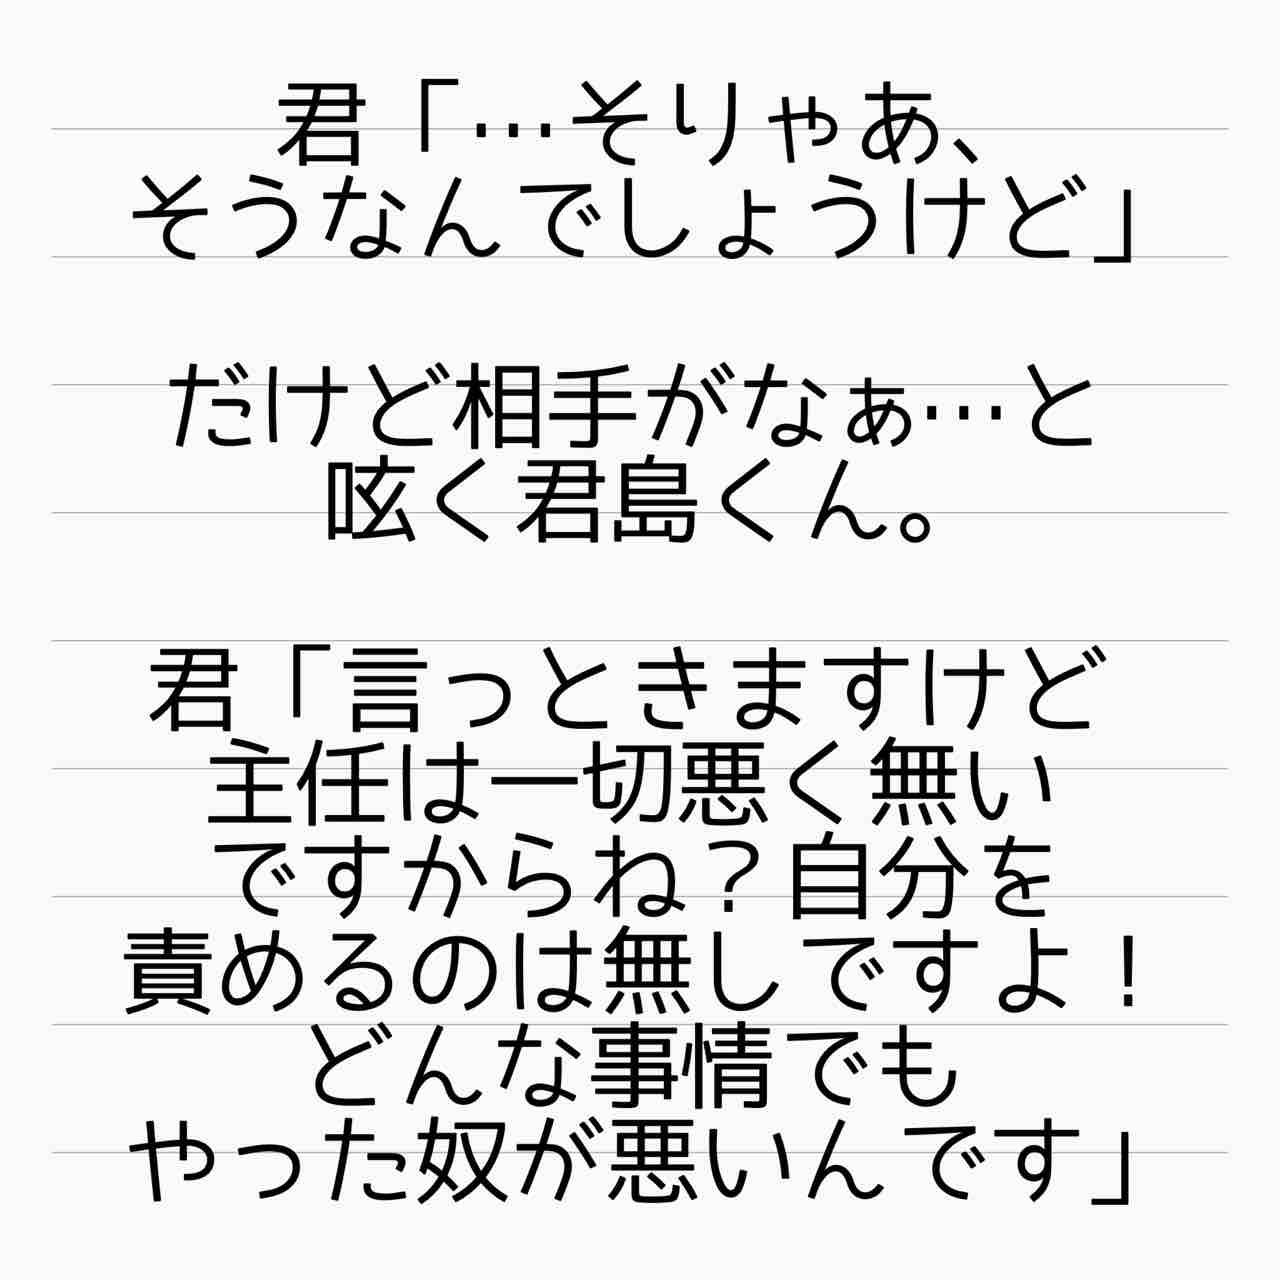 君「…そりゃあ、
そうなんでしょうけど」
だけど相手がなぁ…と
呟く君島くん。
君「言っときますけど
主任は一切悪く無い
ですからね？自分を
責めるのは無しですよ！
どんな事情でも
やった奴が悪いんです」